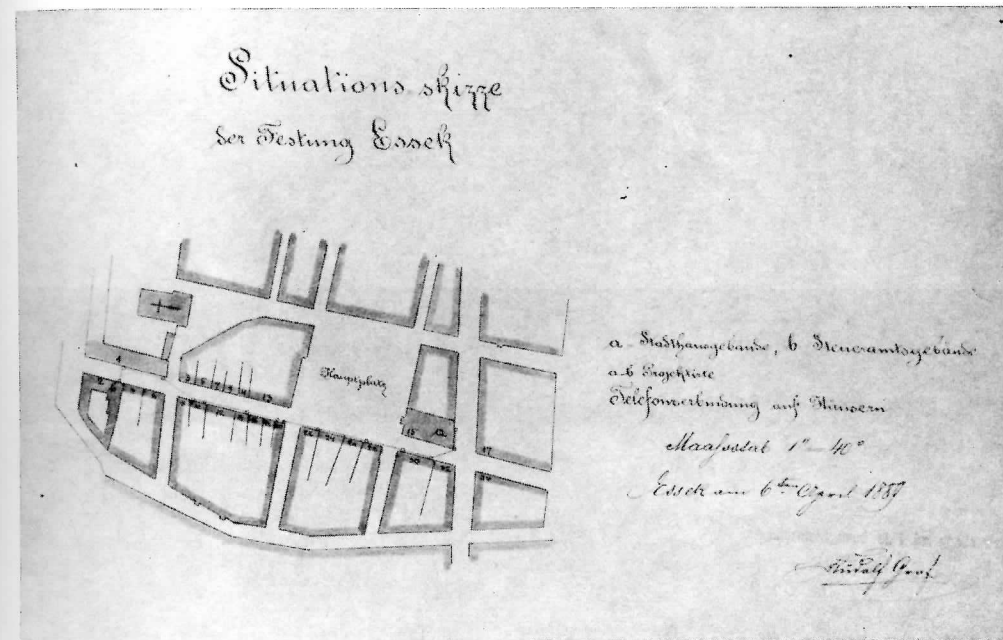 Situations skizze
der Festung Essek
Hauptplatz
a Stadthausgebäude, b Steueramtsgebäude
a.b Projektirte
Telefonverbindung auf Häusern
Maaſsstab 1" = 40°
Essek am 6ten April 1889
Rudolf Graf